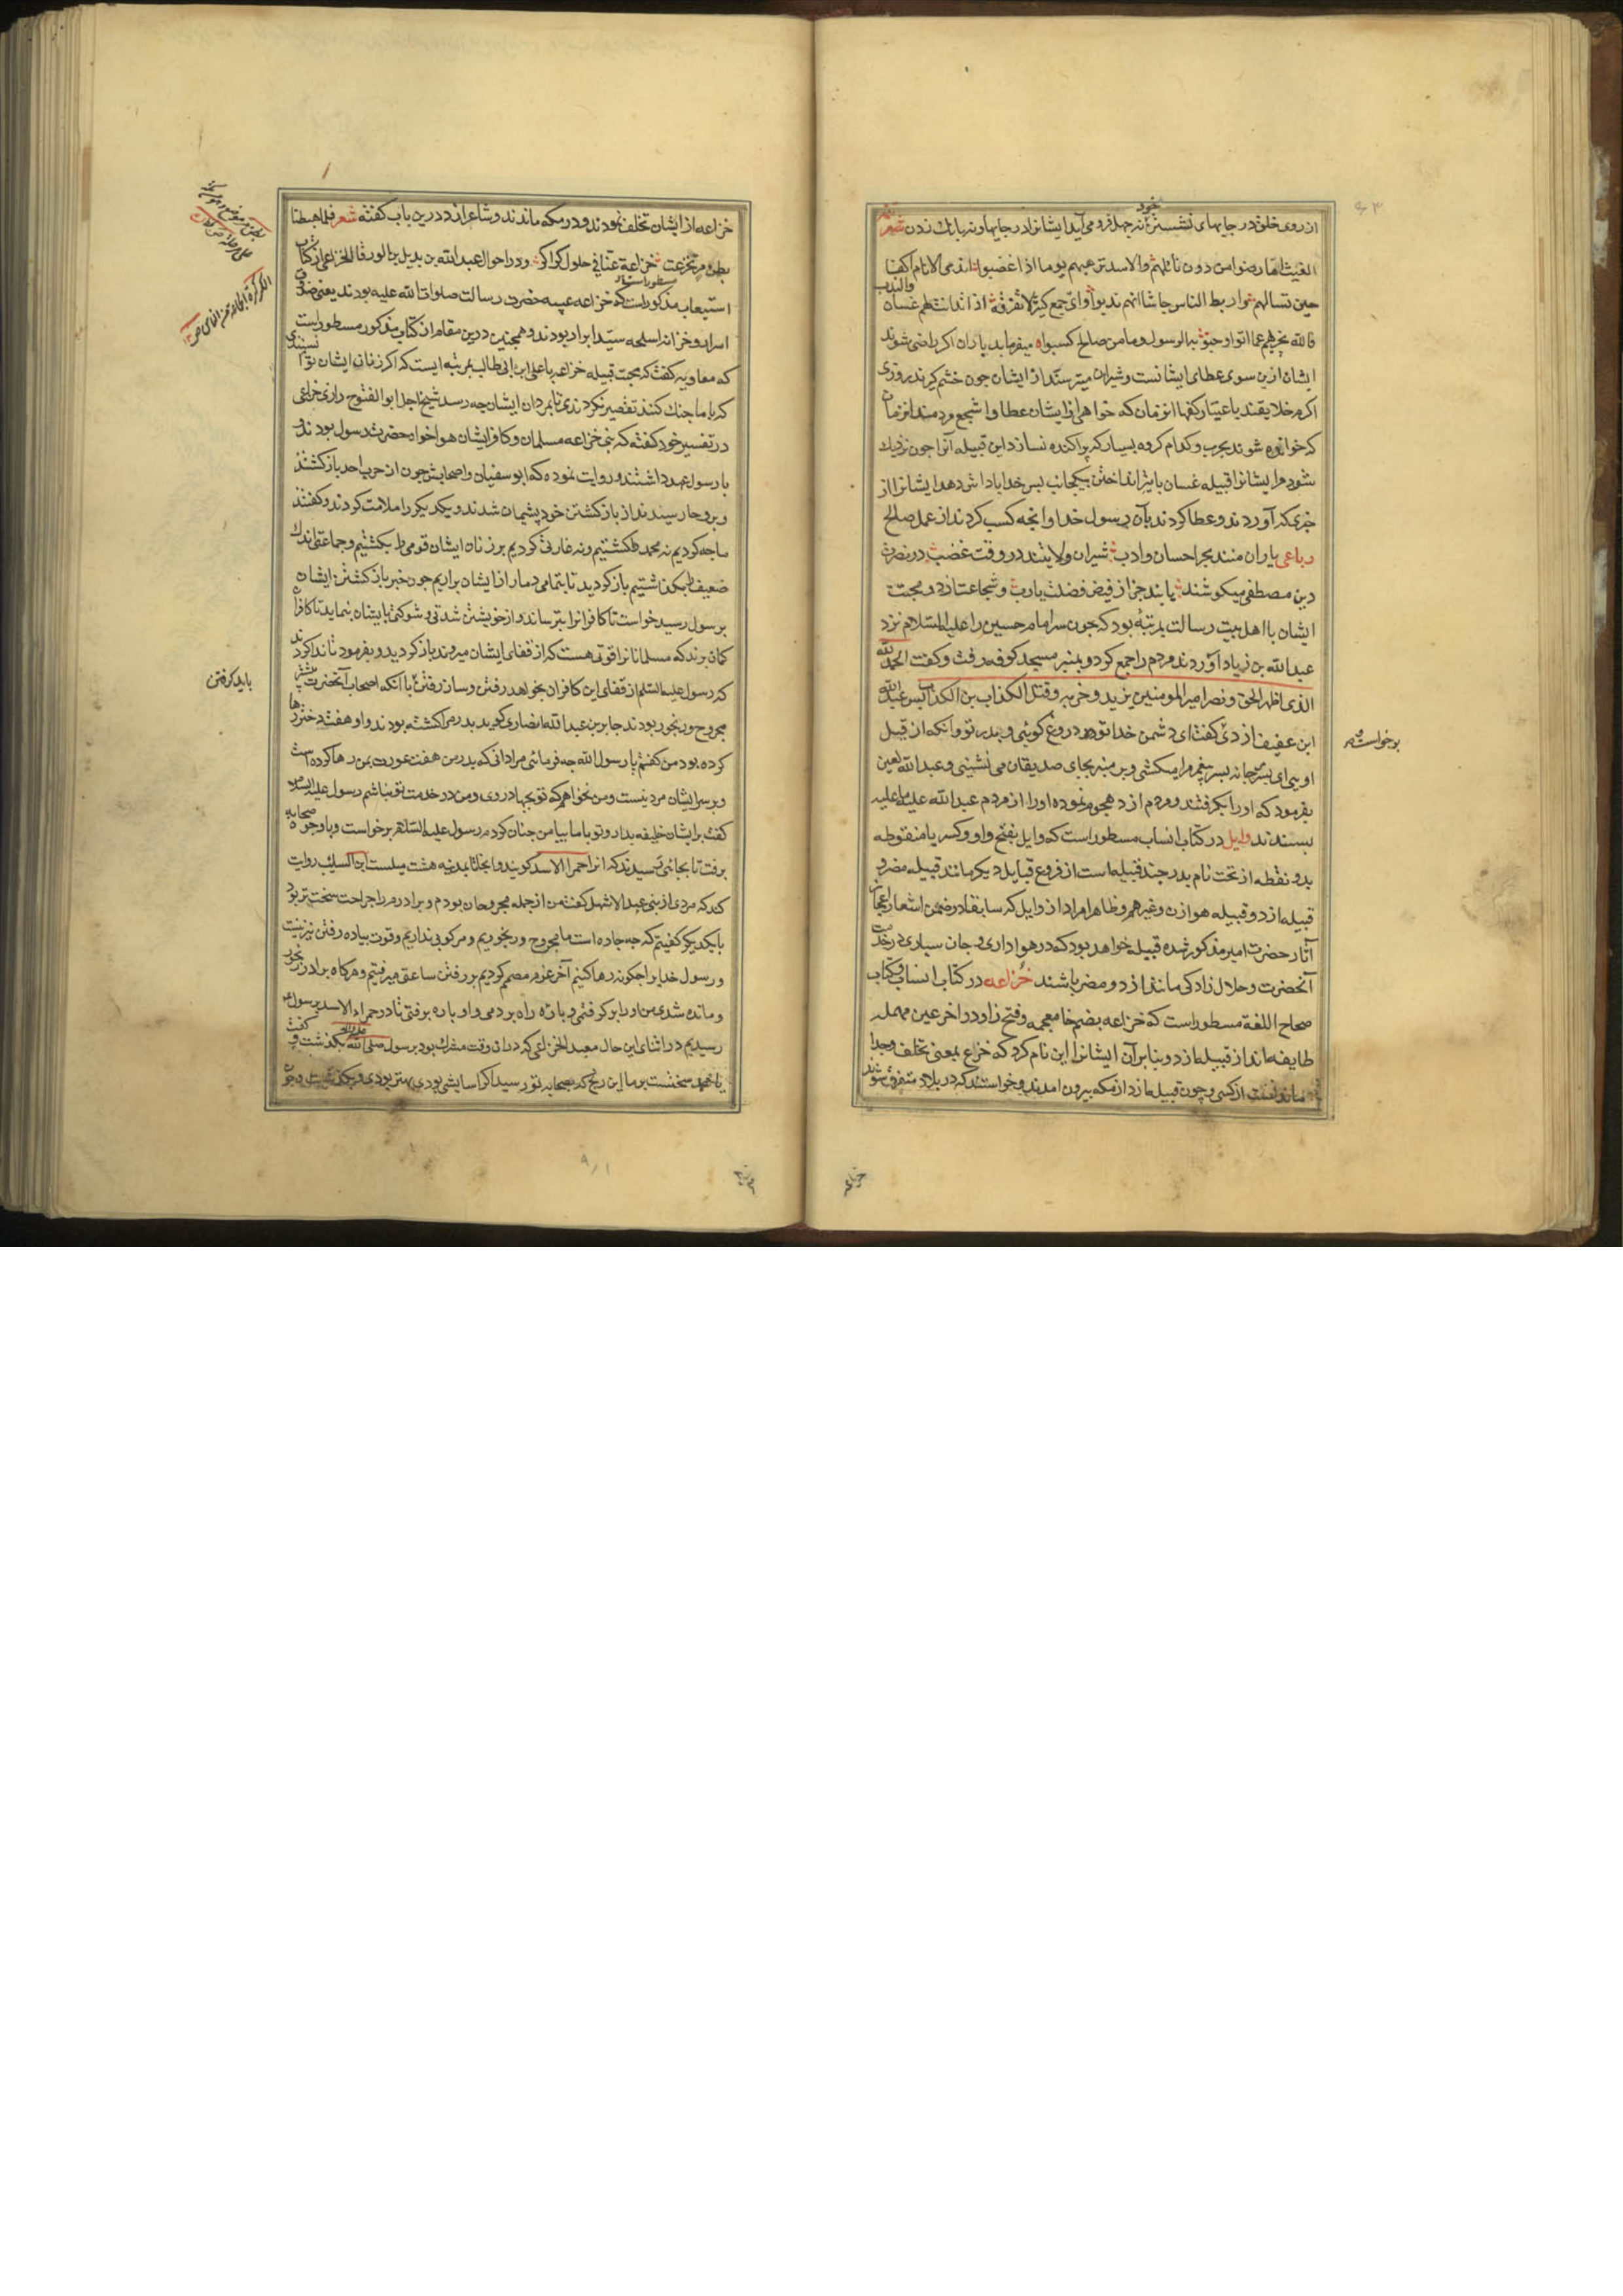 خود
از روی خلق در جایهای نشستن نه جهل فرو می آید ایشانرا در جایها و نه بابانک زدن شعر
الغیث اما رضوا من دون نائلهم والاسد ترهبهم یوما اذا غضبوا اندی الانام اکفا
حین تسالهم واربط الناس جاشا انهم ندبوا وای جمع کثیر لا تفرقه اذا تدانت لهم غسان والندب
فالله یجزیهم عما اتوا وحبوا به الرسول وما من صالح کسبوا میفرماید یاران اکر راضی شوند
ایشان ازین سوی عطای ایشانست و شیران میترسند از ایشان چون خشم کیرند روزی
اکرم خلایقند باعتبار کفها انزمان که خواهی از ایشان عطا و اشجع مردمند انزمان
که خوانده شوند بحرب و کدام کروه بسیار که پراکنده نسازد این قبیله آنرا چون نزدیک
شود مر ایشانرا قبیله غسان با تیر انداختن بیکجانب پس خدا پاداش دهد ایشانرا از
چیزی که آوردند و عطا کردند بآن رسول خدا و انچه کسب کردند از عمل صالح
رباعی یاران منند بحر احسان و ادب شیران ولایتند در وقت غضب در نصرت
دین مصطفی میکوشند یابند جزا از فیض فضلت یارب و شجاعت ازد و محبت
ایشان با اهل بیت رسالت بمرتبه بود که چون سر امام حسین را علیه السلام نزد
عبد الله بن زیاد آوردند مردم را جمع کرد و بمنبر مسجد کوفه رفت و کفت الحمد لله
الذی اظهر الحق و نصر امیر المومنین یزید و حزبه و قتل الکذاب بن الکذاب پس عبد الله
ابن عفیف ازدی کفت ای دشمن خدا تو دروغ کوئی و پدر تو و انکه از قبل
برخواست
اویی ای پسر مرجانه پسر پیغمر را میکشی و بر منبر بجای صدیقان می نشینی و عبد الله لعین
بفرمود که او را بکرفتند و مردم ازد هجوم نموده او را از مردم عبد الله علیه ما علیه
بستدند وایل در کتاب انساب مسطور است که وایل بفتح واو و کسر یا منقوطه
بدو نقطه از تحت نام پدر چند قبیله است از فروع قبایل دیکر مانند قبیله مضر و
قبیله ازد و قبیله هوازن و غیرهم و ظاهرا مراد از وایل که سابقا در ضمن اشعار اعجاز
آثار حضرت امیر مذکور شده قبیله خواهد بود که در هواداری و جان سپاری در خدمت
آنحضرت و حلال زادکی مانند ازد و مضر باشند خزاعه در کتاب انساب و کتاب
صحاح اللغة مسطور است که خزاعه بضم خا معجمه و فتح زا و در آخر عین مهمله
طایفه اند از قبیله ازد و بنابر آن ایشانرا این نام کرد که خزاع بمعنی تخلف و جدا
ماندنست از کسی و چون قبیله ازد از مکه بیرون امدند و خواستند که در بلاد متفرق شوند
خزاعه
خزاعه از ایشان تخلف نمودند و در مکه ماندند و شاعر ازد درین باب کفته شعر فلما هبطنا
بطن مر تخزعت خزاعة عنا فی حلول کراکر و در احوال عبد الله بن بدیل بن الورقا الخزاعی از کتاب
استیعاب مذکور است که خزاعه عیبه حضرت رسالت صلوات الله علیه بودند یعنی صندوق
اسرار و خزانه اسلحه سید ابرار بودند و همچنین درین مقام از کتاب مذکور مسطور است
که معاویه کفت که محبت قبیله خزاعه با علی ابن ابی طالب بمرتبه ایست که اکر زنان ایشان توانستندی
که با ما جنک کنند تقصیر نکردندی تا بمردان ایشان چه رسد شیخ اجل ابو الفتوح رازی خزاعی
در تفسیر خود کفته که بنی خزاعه مسلمان و کافر ایشان هوا خواه حضرت رسول بودند و
با رسول عهد داشتند و روایت نموده که ابو سفیان و اصحابش چون از حرب احد باز کشتند
و بروحا رسیدند از باز کشتن خود پشیمان شدند و یکدیکر را ملامت کردند و کفتند
ما چه کردیم نه محمد را کشتیم و نه غارتی کردیم بر زنان ایشان قومی را بکشتیم و جماعتی اندک
ضعیف را بکذاشتیم باز کردید تا بتمامی دمار از ایشان براریم چون خبر باز کشتن ایشان
برسول رسید خواست تا کافرانرا بترساند و از خویشتن شدتی و شوکتی بایشان بنماید تا کافران
کمان برند که مسلمانانرا قوتی هست که از قفای ایشان میروند باز کردید و بفرمود تا ندا کردند
که رسول علیه السلم از قفای این کافران بخواهد رفتن و ساز رفتن با آنکه اصحاب آنحضرت بیشتر
باید کرفتن
مجروح و رنجور بودند جابر بن عبد الله انصاری کوید پدرم را کشته بودند و او هفت دختر رها
کرده بود من کفتم یا رسول الله چه فرمائی مرا دانی که پدر من هفت عورت بمن رها کرده است
و بر سر ایشان مرد نیست و من نخواهم که تو بجهاد روی و من در خدمت تو نباشم رسول علیه السلام
کفت بر ایشان خلیفه بدار و تو با ما بیا من چنان کردم رسول علیه السلام برخواست و با وجوه صحابه
برفت تا بجائی رسیدند که انرا حمرا الاسد کویند و از انجا تا بمدینه هشت میلست ابن السایب روایت
کند که مردی از بنی عبد الاشهل کفت من از جمله مجروحان بودم و برادرم را جراحت سخت تر بود
با یکدیکر کفتیم که چه چاره است ما مجروح و رنجوریم و مرکوبی نداریم و قوت پیاده رفتن نیز نیست
و رسول خدا را چکونه رها کنیم آخر عزم مصمم کردیم بر رفتن ساعتی میرفتیم و هرکاه برادر رنجور
و مانده شدی من او را بر کرفتمی و پاره راه بردمی و او پاره برفتی تا در حمراء الاسد برسول
رسیدیم در اثنای این حال معبد الخزاعی که در ان وقت مشرک بود برسول صلی الله علیه و اله بکذشت و کفت
یا محمد سخت است بر ما این رنج که بصحابه تو رسید اکر آسایشی بودی بهتر بودی و بکذشت و چون